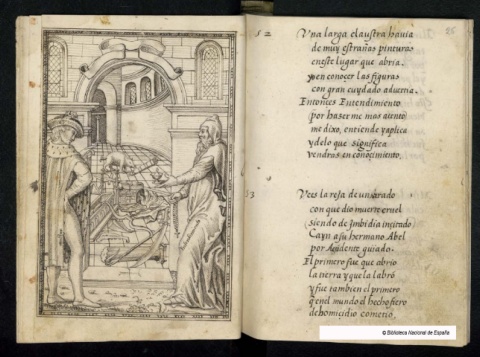 52
Una larga claustra havia
de muy estrañas pinturas
en este lugar que abria.
yo en conocer las figuras
con gran cuydado advertia.
Entonces Entendimiento
por hazer me mas atento
me dixo, entiende y aplica
y de lo que significa
vendras en conocimiento.
53
Vees la reja de un arado
con que dio muerte cruel
(siendo de Imbidia incitado)
Cayn a su hermano Abel
por Acidente guiado.
El primero fue que abrio
la tierra y que la labró
y fue tambien el primero
q̃ en el mundo el hecho fiero
de homicidio cometio.
© Biblioteca Nacional de España